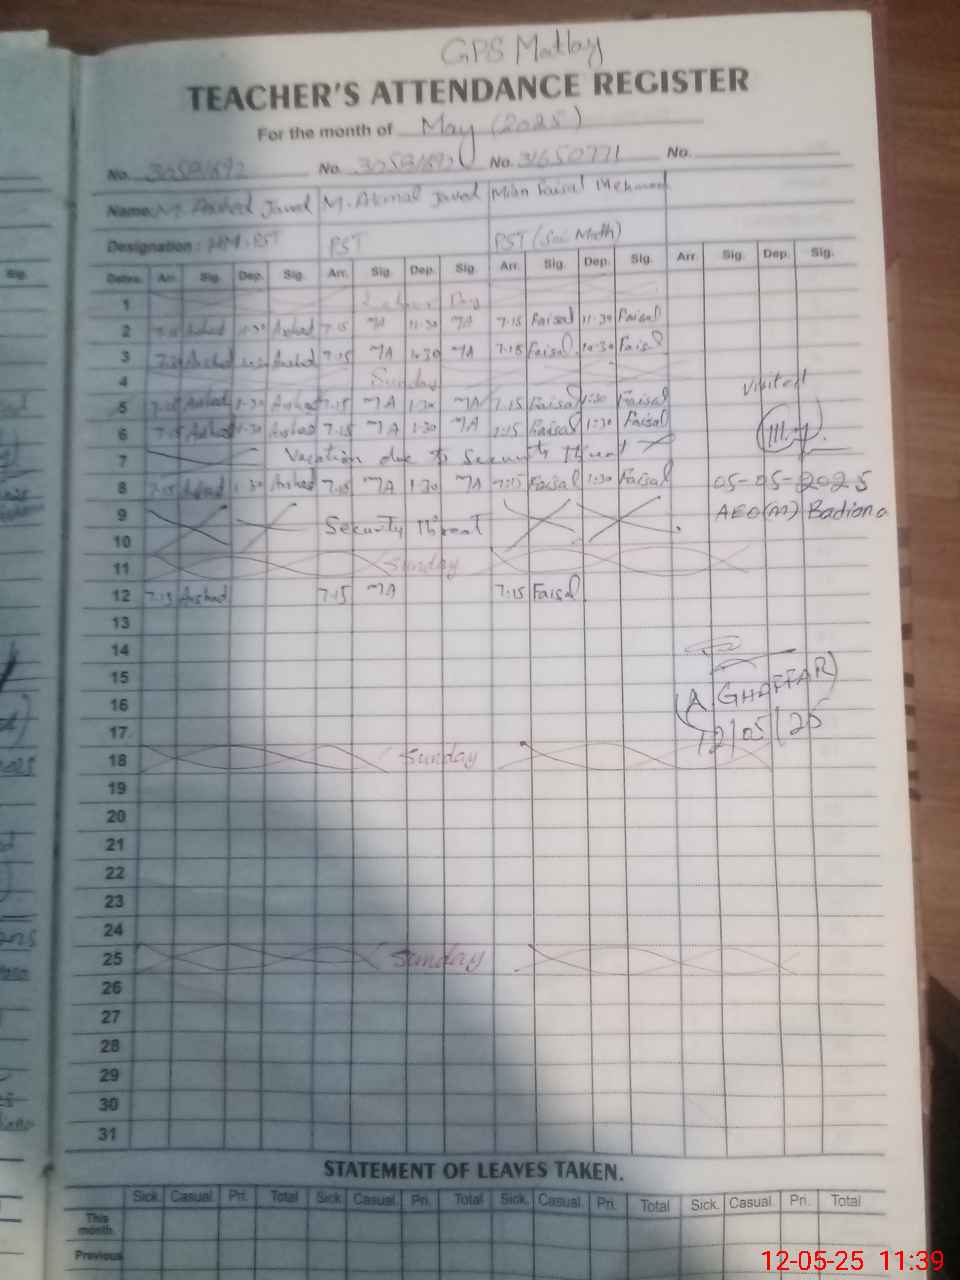 GPS Matlay
TEACHER'S ATTENDANCE REGISTER
For the month of May (2025)
No. 30581892 No. 30581892 No. 31650771 No.
Name: M. Arshad Javed M. Akmal Javed Mian Faisal Mehmood
Designation: HM.PST PST PST (Sci Math)
Dates. Arr. Sig. Dep. Sig. Arr. Sig. Dep. Sig. Arr. Sig. Dep. Sig. Arr. Sig. Dep. Sig.
1 Labour Day
2 7.15 Arshad 11.30 Arshad 7.15 MA 11.30 MA 7.15 Faisal 11.30 Faisal
3 Arshad Arshad 7.15 MA MA 7.15 Faisal Faisal
4 Sunday
visited
5 7.15 Arshad 1.30 Arshad 7.15 MA 1.30 MA 7.15 Faisal 1:30 Faisal
6 7.15 Arshad 1.30 Arshad 7.15 MA 1.30 MA 7:15 Faisal 1:30 Faisal
7 Vacation due to Security Threat
8 7.15 Arshad 1.30 Arshad 7.15 MA 1.30 MA 7:15 Faisal 1:30 Faisal 05-05-2025
9 Security Threat AEO(M) Badiana
10
11 Sunday
12 7.15 Arshad 7.15 MA 7:15 Faisal
13
14
15
16 (A GHAFFAR)
17 12/05/25
18 Sunday
19
20
21
22
23
24
25 Sunday
26
27
28
29
30
31
STATEMENT OF LEAVES TAKEN.
Sick. Casual. Pri. Total Sick. Casual. Pri. Total Sick. Casual. Pri. Total Sick. Casual. Pri. Total
This month.
Previous
12-05-25 11:39